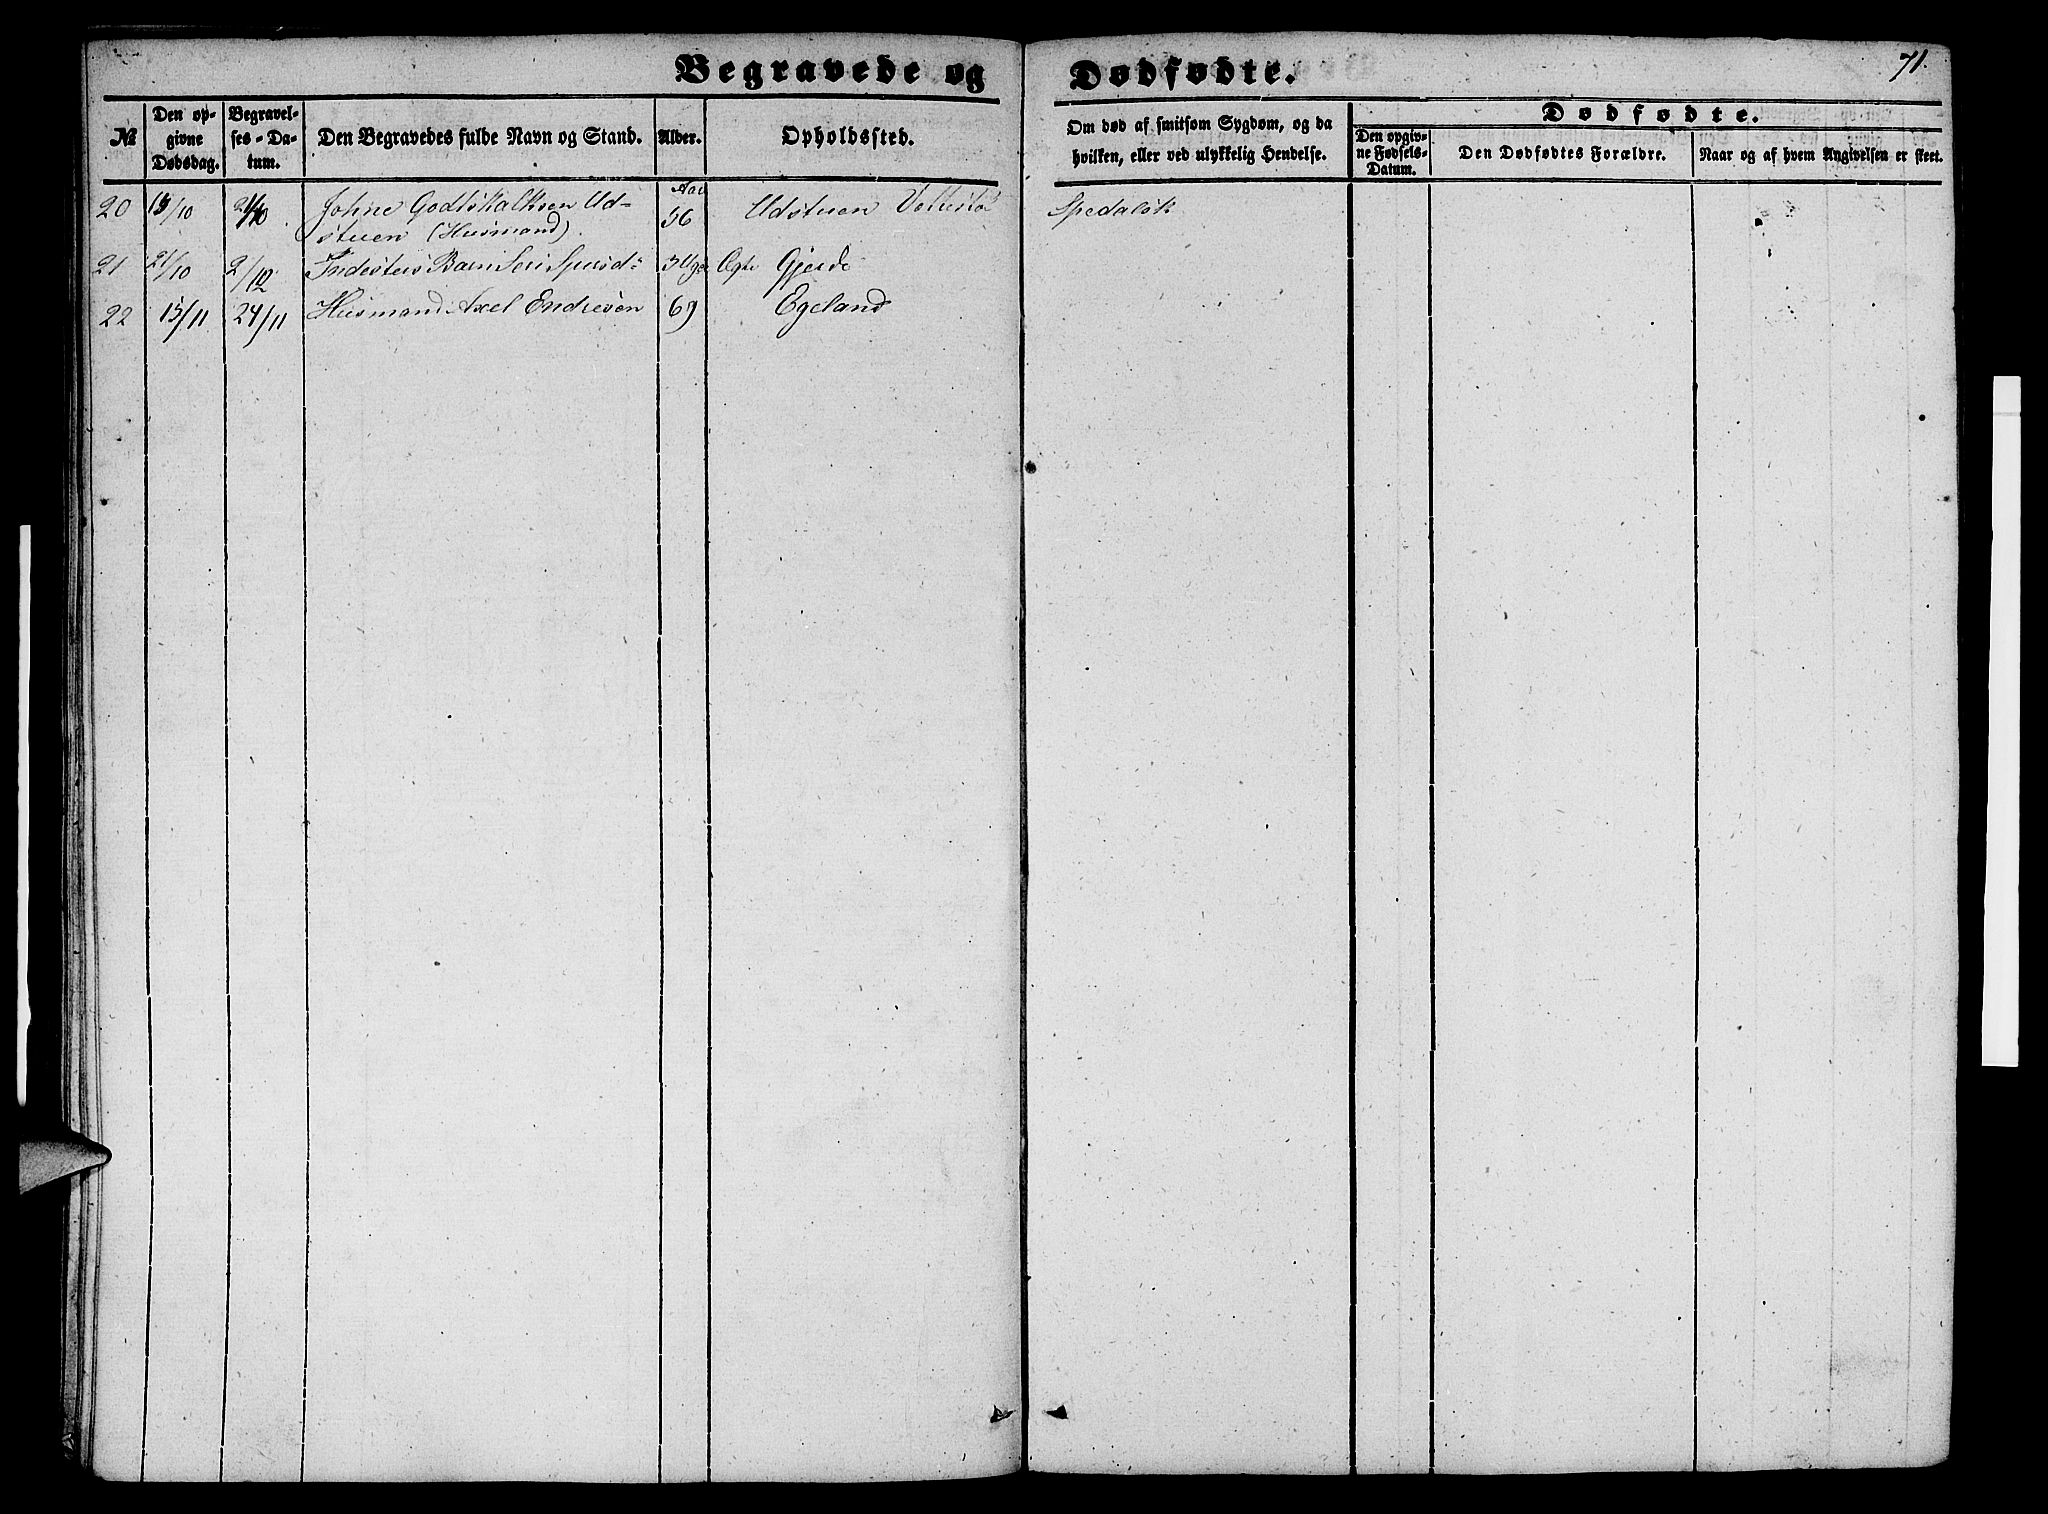 Begravede og Dødfødte.
71.
№
Den opgivne Dødsdag.
Begravelses-Datum.
Den Begravedes fulde Navn og Stand.
Alder.
Opholdssted.
Om død af smitsom Sygdom, og da hvilken, eller ved ulykkelig Hendelse.
Dødfødte.
Den opgivne Fødsels-Datum.
Den Dødfødtes Forældre.
Naar og af hvem Angivelsen er skeet.
Aar
20 13/10 Johne Godtskalksen Ud- 56 Udstuen Spedalsk
stuen (Husmand).
21 21/10 2/12 Indesters Barn 3 Uger Ægte Gjerde
22 15/11 24/11 Husmand Axel Endresen 69 Egeland